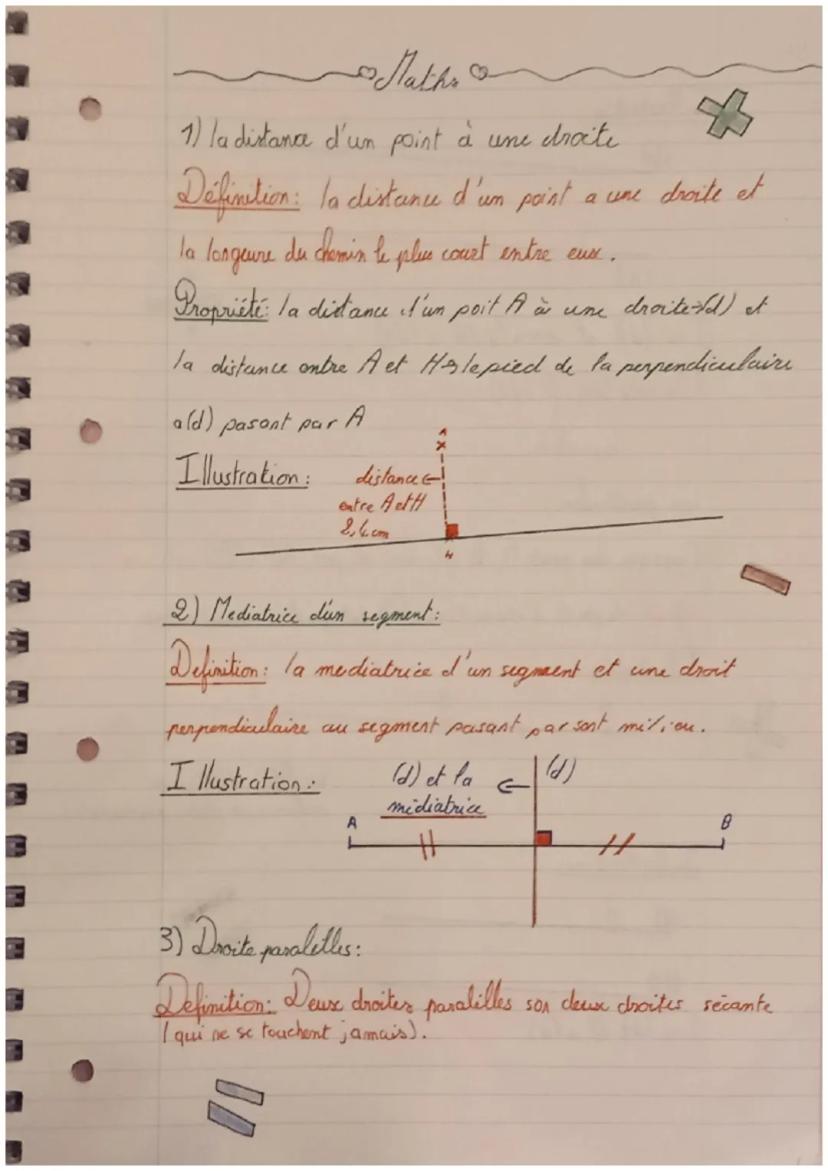 Maths
1) la distance d'un point à une droite
Définition: la distance d'un point a une droite et
la longeure du chemin le plus court entre eux.
Propriété: la distance d'un poit A à une droite→(d) et
la distance entre A et H→le pied de la perpendiculaire
a(d) pasant par A
Illustration:
A
distance ←
entre A et H
2,4 cm
H
2) Mediatrice d'un segment:
Definition: la mediatrice d'un segment et une droit
perpendiculaire au segment pasant par sont milieu.
Illustration:
(d) et la ← (d)
médiatrice
A B
3) Droite paralelles:
Definition: Deux droites paralilles son deux droites sécante
(qui ne se touchent jamais).